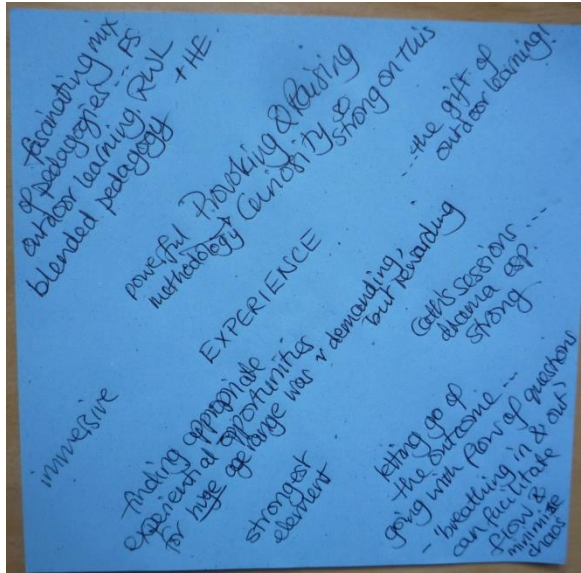 fascinating mix
of pedagogies --- FS
outdoor learning RWL
blended pedagogy + HE
powerful Provoking & Raising
methodology Curiosity so
strong on this
--- the gift of
outdoor learning!
EXPERIENCE
immersive
finding appropriate
experiential opportunities
for huge age range was v demanding,
but rewarding
strongest
element
Cath's sessions ---
drama esp.
strong
letting go of
the outcome ---
going with flow of questions
- 'breathing in & out'
can facilitate
flow &
minimise
chaos